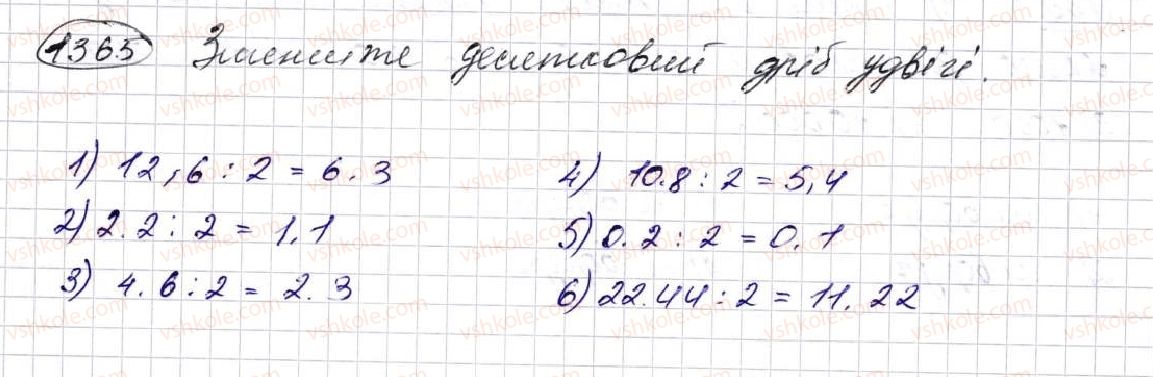 1365 Зменшите десятковий дріб удвічі.
1) 12,6 : 2 = 6.3
2) 2.2 : 2 = 1,1
3) 4.6 : 2 = 2.3
4) 10.8 : 2 = 5,4
5) 0.2 : 2 = 0.1
6) 22.44 : 2 = 11.22
vshkole.com